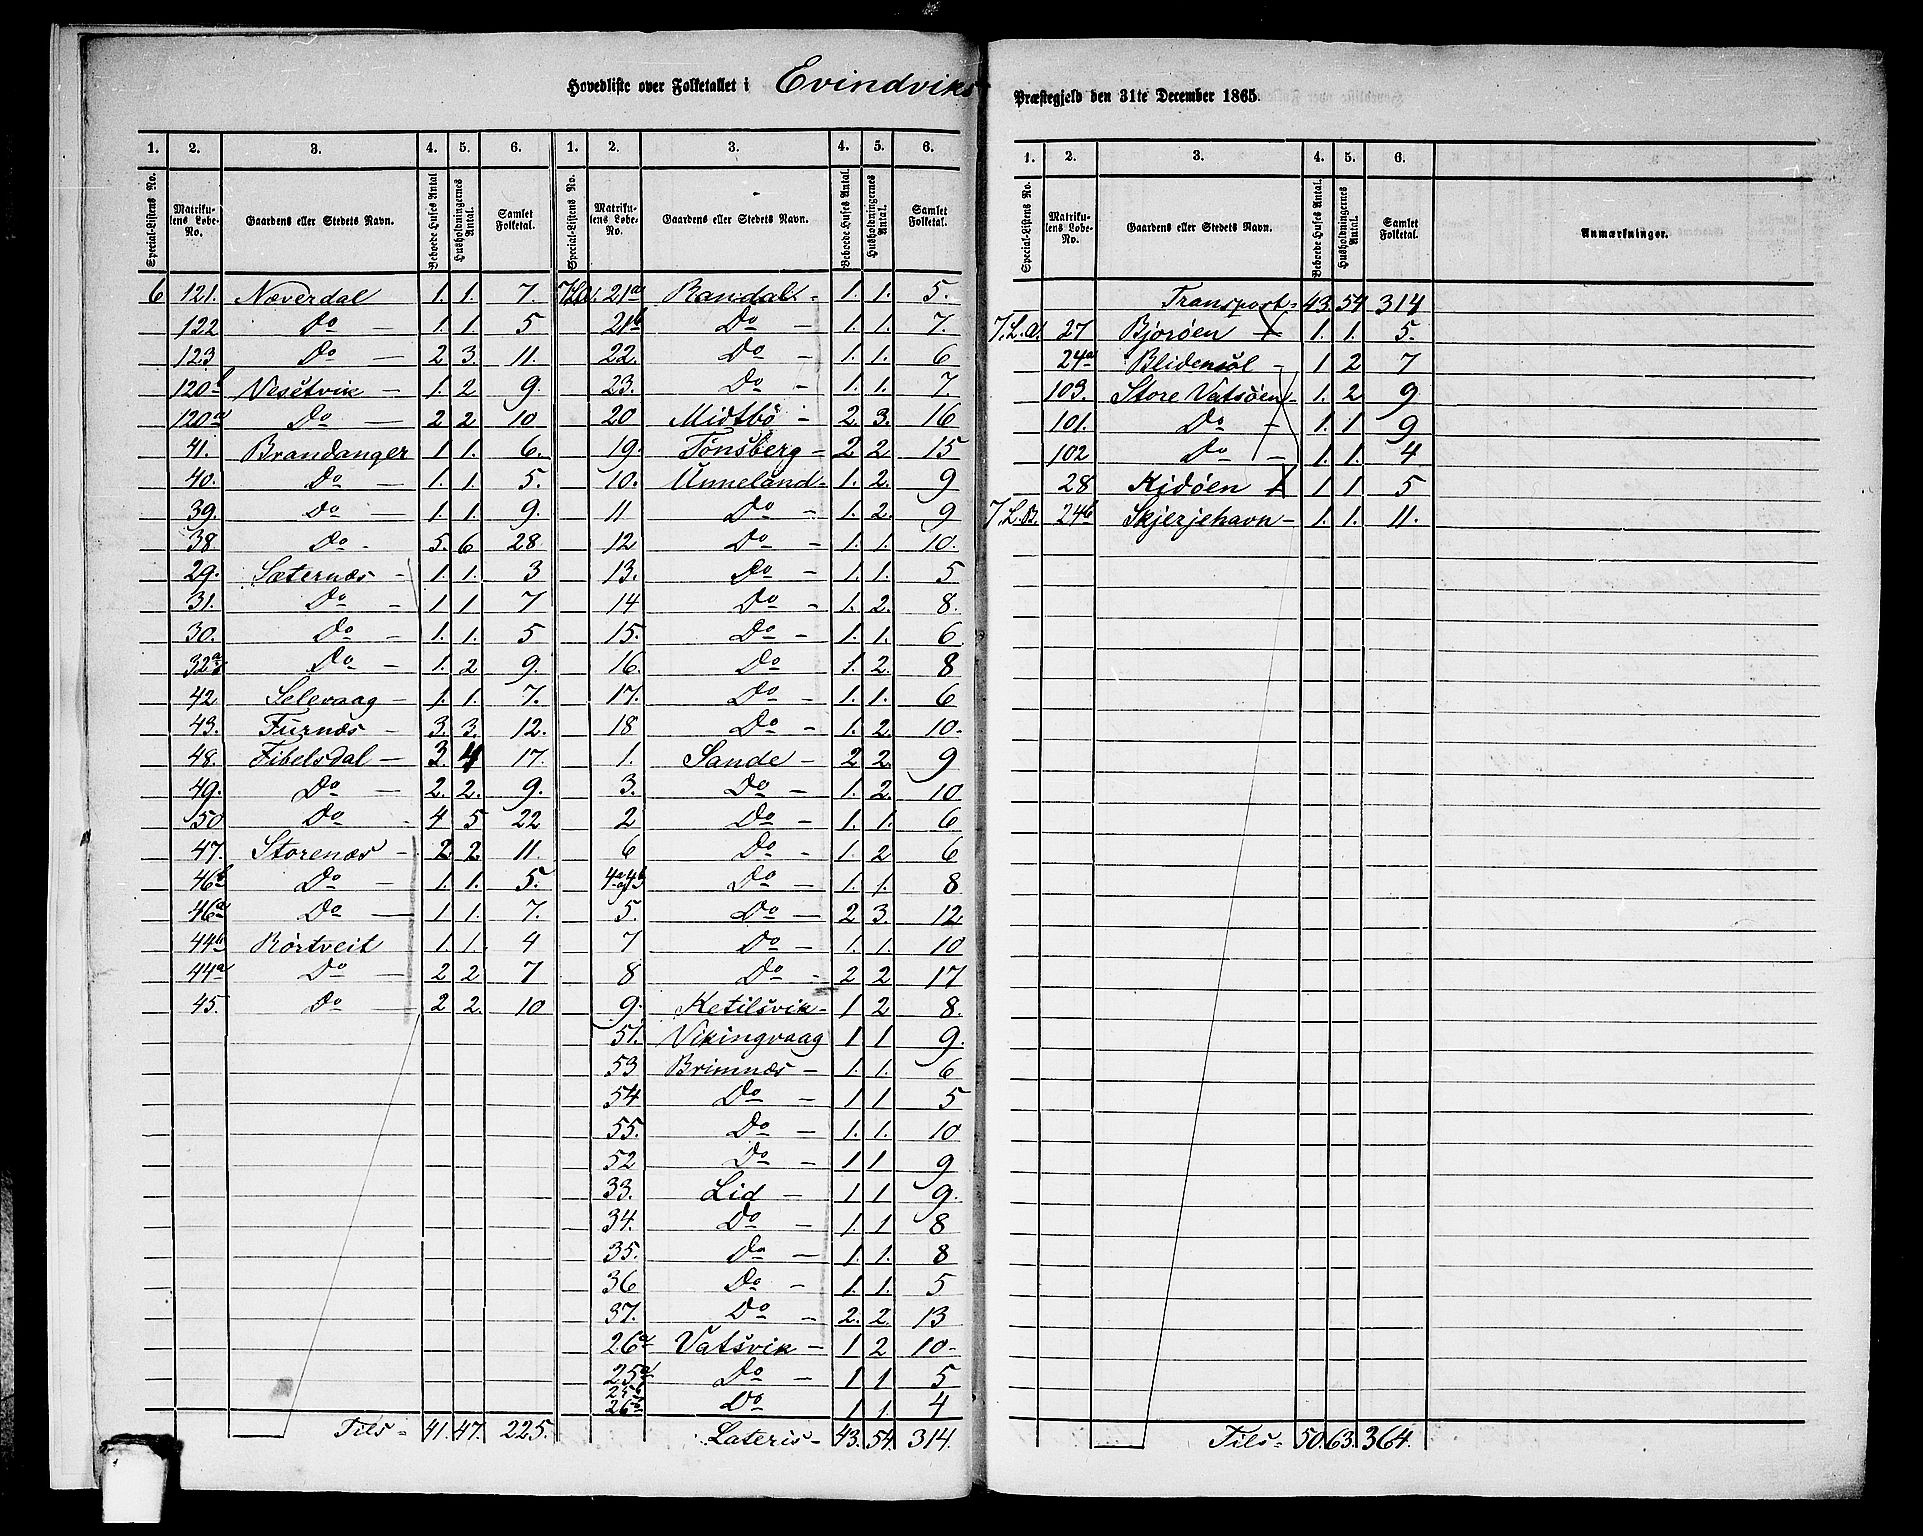 Hovedliste over Folketallet i Evindviks Præstegjeld den 31te December 1865.
1. 2. 3. 4. 5. 6. 1. 2. 3. 4. 5. 6.
Special-Listens No. Matrikulens Løbe-No. Gaardens eller Stedets Navn. Beboede Huses Antal Husholdningernes Antal. Samlet Folketal. Special-Listens No. Matrikulens Løbe-No. Gaardens eller Stedets Navn. Beboede Huses Antal. Husholdningernes Antal. Samlet Folketal.
6 121. Næverdal 1. 1. 7. 7.L.A. 21a Randal - 1. 1. 5.
122 Do - 1. 1. 5 21b Do - 1. 1. 7.
123 Do - 2 3. 11. 22. Do - 1. 1. 6
120b Nesètvik - 1. 2 9. 23. Do - 1. 1. 7.
120a Do - 2 2 10 20 Midtbö - 2. 3. 16
41. Brandanger 1 1. 6. 19. Tönsberg - 2 2 15
40. Do - 1. 1. 5. 10. Unneland - 1. 2. 9
39. Do - 1. 1. 9. 11 Do - 1. 2. 9
38. Do - 5. 6 28 12 Do - 1. 1. 10.
29. Sæternæs - 1. 1. 3 13. Do - 1. 1. 5
31. Do - 1 1. 7 14 Do - 1. 2. 8.
30. Do - 1. 1. 5 15. Do - 1. 1. 6
32a Do - 1. 2 9. 16. Do 1. 2. 8
42 Selevaag - 1. 1. 7. 17. Do - 1. 1. 6
43. Furnæs - 3. 3. 12. 18 Do - 1. 2. 10.
48. Fibelsdal - 3 4 17. 1. Sande - 2 2. 9
49. Do - 2. 2. 9. 3. Do - 1. 2. 10
50 Do - 4 5 22 2 Do - 1. 1. 6
47. Storenæs - 2 2. 11. 6 Do - 1. 2 6
46b Do - 1. 1. 5. 4a 4b Do - 1. 1. 8
46a Do - 1 1. 7. 5. Do - 2 3. 12
44b Rörtveit 1. 1. 4 7 Do - 1. 1. 10
44a Do - 2 2 7 8 Do - 2 2 17
45. Do - 2 2. 10 9. Ketilsvik - 1 2 8.
51. Vikingvaag 1 1 9.
53 Brimnæs - 1. 1. 6
54 Do - 1 1 5
55. Do - 1. 1. 10
52 Do - 1 1 9
33. Lid - 1 1 9.
34. Do - 1. 1 8
35. Do - 1. 1. 8
36 Do - 1. 1. 5
37. Do - 2. 2. 13
26a Vatsvik - 1 2 10 -
25a Do - 1 1 5
25b 26b Do 1 1. 4
Tils - 41. 47. 225. Lateris - 43. 54. 314.
1. 2. 3. 4. 5. 6.
Special-Listens No. Matrikulens Løbe-No. Gaardens eller Stedets Navn. Beboede Huses Antal. Husholdningernes Antal. Samlet Folketal. Anmærkninger.
Transport - 43. 54 314
7.L.A. 27 Bjoröen - 1. 1. 5.
24a Blidensöl - 1 2 7
103. Store Vatsöen - 1. 2 9
101. Do - 1. 1 9
102 Do - 1. 1. 4
28 Kidöen 1 1 5
7.L.B. 24b Skjerjehavn - 1. 1. 11.
Tils - 50. 63. 364.